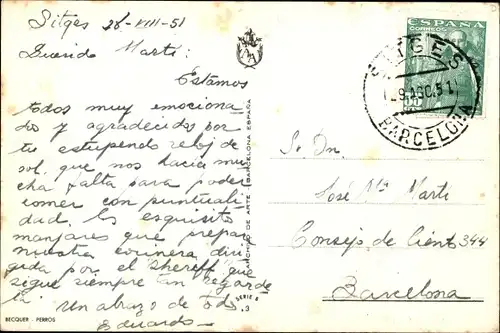 Sitges 28-VIII-51
Querido Martí:
Estamos
todos muy emociona
dos y agradecidos por
tu estupendo reloj de
sol, que nos hacía mu
cha falta para poder
comer con puntuali
dad. Los esquisitos
manjares que prepara
nuestra cocinera diri
gida por el Shereff que
sigue siempre tan
Un abrazo de tods
Eduardo
BECQUER - PERROS
ARCHIVO DE ARTE
BARCELONA ESPAÑA
SERIE
3
ESPAÑA
CORREOS
35
SITGES
29 AGO. 51
BARCELONA
S. Dn.
José Mª Martí
Consejo de Ciento 344
Barcelona